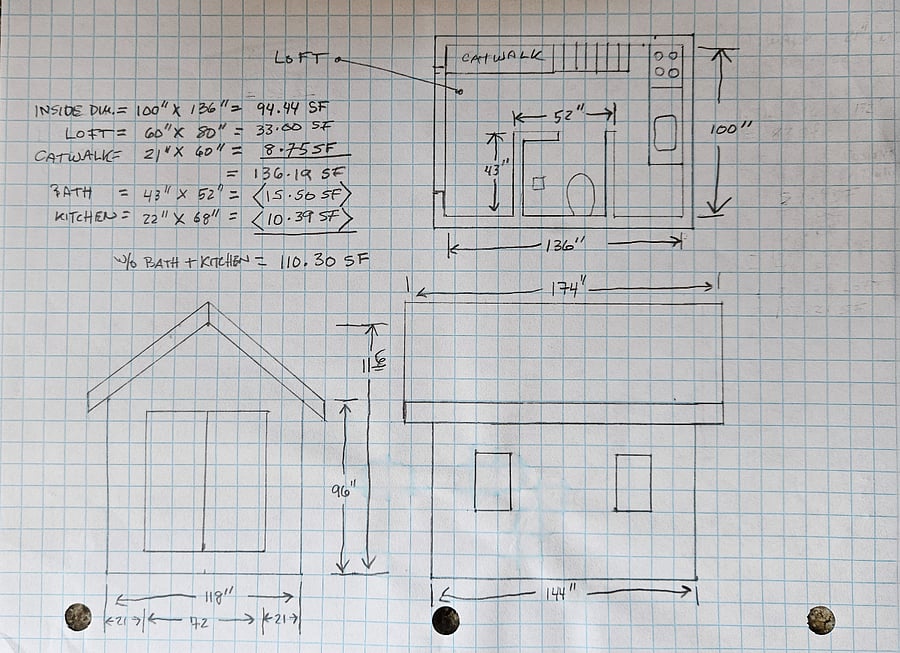 LOFT
CATWALK
INSIDE DIM. = 100" X 136" = 94.44 SF
LOFT = 60" X 80" = 33.00 SF
CATWALK = 21" X 60" = 8.75 SF
= 136.19 SF
BATH = 43" X 52" = <15.50 SF>
KITCHEN = 22" X 68" = <10.39 SF>
W/O BATH + KITCHEN = 110.30 SF
52"
43"
100"
136"
174"
116
96"
118"
21
72
21
144"